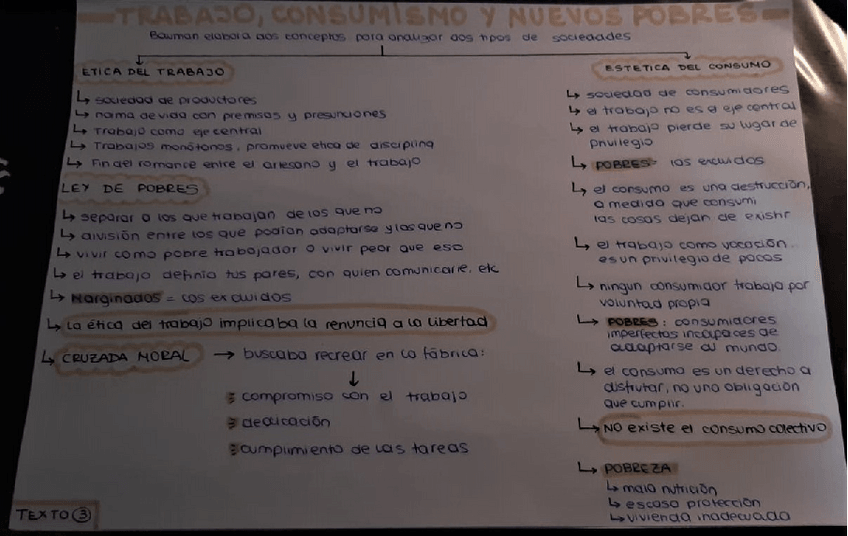 TRABAJO, CONSUMISMO Y NUEVOS POBRES
Bauman elabora dos conceptos para analizar dos tipos de sociedades
ETICA DEL TRABAJO
↳ sociedad de productores
↳ norma de vida con premisas y presunciones
↳ Trabajo como eje central
↳ Trabajos monótonos, promueve etica de disciplina
↳ Fin del romance entre el artesano y el trabajo
LEY DE POBRES
↳ separar a los que trabajan de los que no
↳ división entre los que podían adaptarse y los que no
↳ vivir como pobre trabajador o vivir peor que eso
↳ el trabajo definía tus pares, con quien comunicarte, etc
↳ Marginados = los excluidos
↳ La ética del trabajo implicaba la renuncia a la libertad
↳ CRUZADA MORAL → buscaba recrear en la fábrica:
↓
compromiso con el trabajo
dedicación
cumplimiento de las tareas
TEXTO ③
ESTETICA DEL CONSUMO
↳ sociedad de consumidores
↳ el trabajo no es el eje central
↳ el trabajo pierde su lugar de
privilegio
↳ POBRES= los excluidos
↳ el consumo es una destrucción,
a medida que consumi
las cosas dejan de existir
↳ el trabajo como vocación
es un privilegio de pocos
↳ ningun consumidor trabaja por
voluntad propia
↳ POBRES: consumidores
imperfectos incapaces de
adaptarse al mundo.
↳ el consumo es un derecho a
disfrutar, no una obligación
que cumplir.
↳ NO existe el consumo colectivo
↳ POBREZA
↳ mala nutrición
↳ escasa protección
↳ vivienda inadecuada